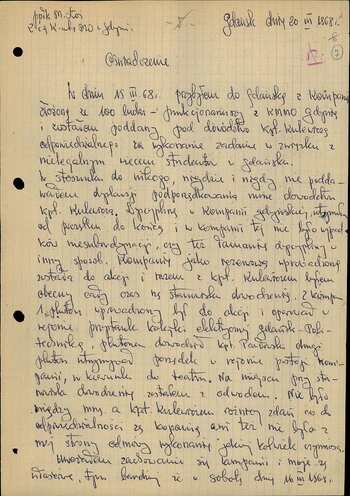 ppłk M. Łoś
Gdańsk dnia 20 III 1968.
Z-ca K-nta MO w Gdyni
Oświadczenie
W dniu 15 III 68 r. przybyłem do Gdańska z Kompanią
złożoną ze 100 ludzi – funkcjonariuszy z KMMO Gdynia
i zostałem poddany pod dowództwo kpt. Kulewicza
odpowiedzialnego za wykonanie zadania w związku z
nielegalnym wiecem studentów w Gdańsku.
W stosunku do nikogo nigdzie i nigdy nie podda-
wałem dyskusji podporządkowania mnie dowództwu
kpt. Kulewicza. Dyscyplinę w kompanii gdyńskiej utrzymałem
od początku do końca i w kompanii tej nie było wypad-
ków niesubordynacji, czy też łamania dyscypliny w
inny sposób. Kompania jako rezerwowa wprowadzona
została do akcji i razem z kpt. Kulewiczem byłem
obecny cały czas na stanowisku dowodzenia. Z kompanii
1. pluton wprowadzony był do akcji i operował w
rejonie przystanku kolejki elektrycznej Gdańsk-Poli-
technika, plutonem dowodził kpt. Pawłowski drugi
pluton utrzymywał porządek w rejonie postoju kom-
panii, w kierunku do teatru. Na miejscu przy sta-
nowisku dowodzenia zostałem z odwodem. Nie było
między mną a kpt. Kulewiczem różnicy zdań co do
odpowiedzialności za kompanię ani też nie było z
mej strony odmowy wykonania jakiejkolwiek czynności.
Uważałem zachowanie się kompanii i moje za
właściwe, tym bardziej że w sobotę dnia 16 III 1968 r.